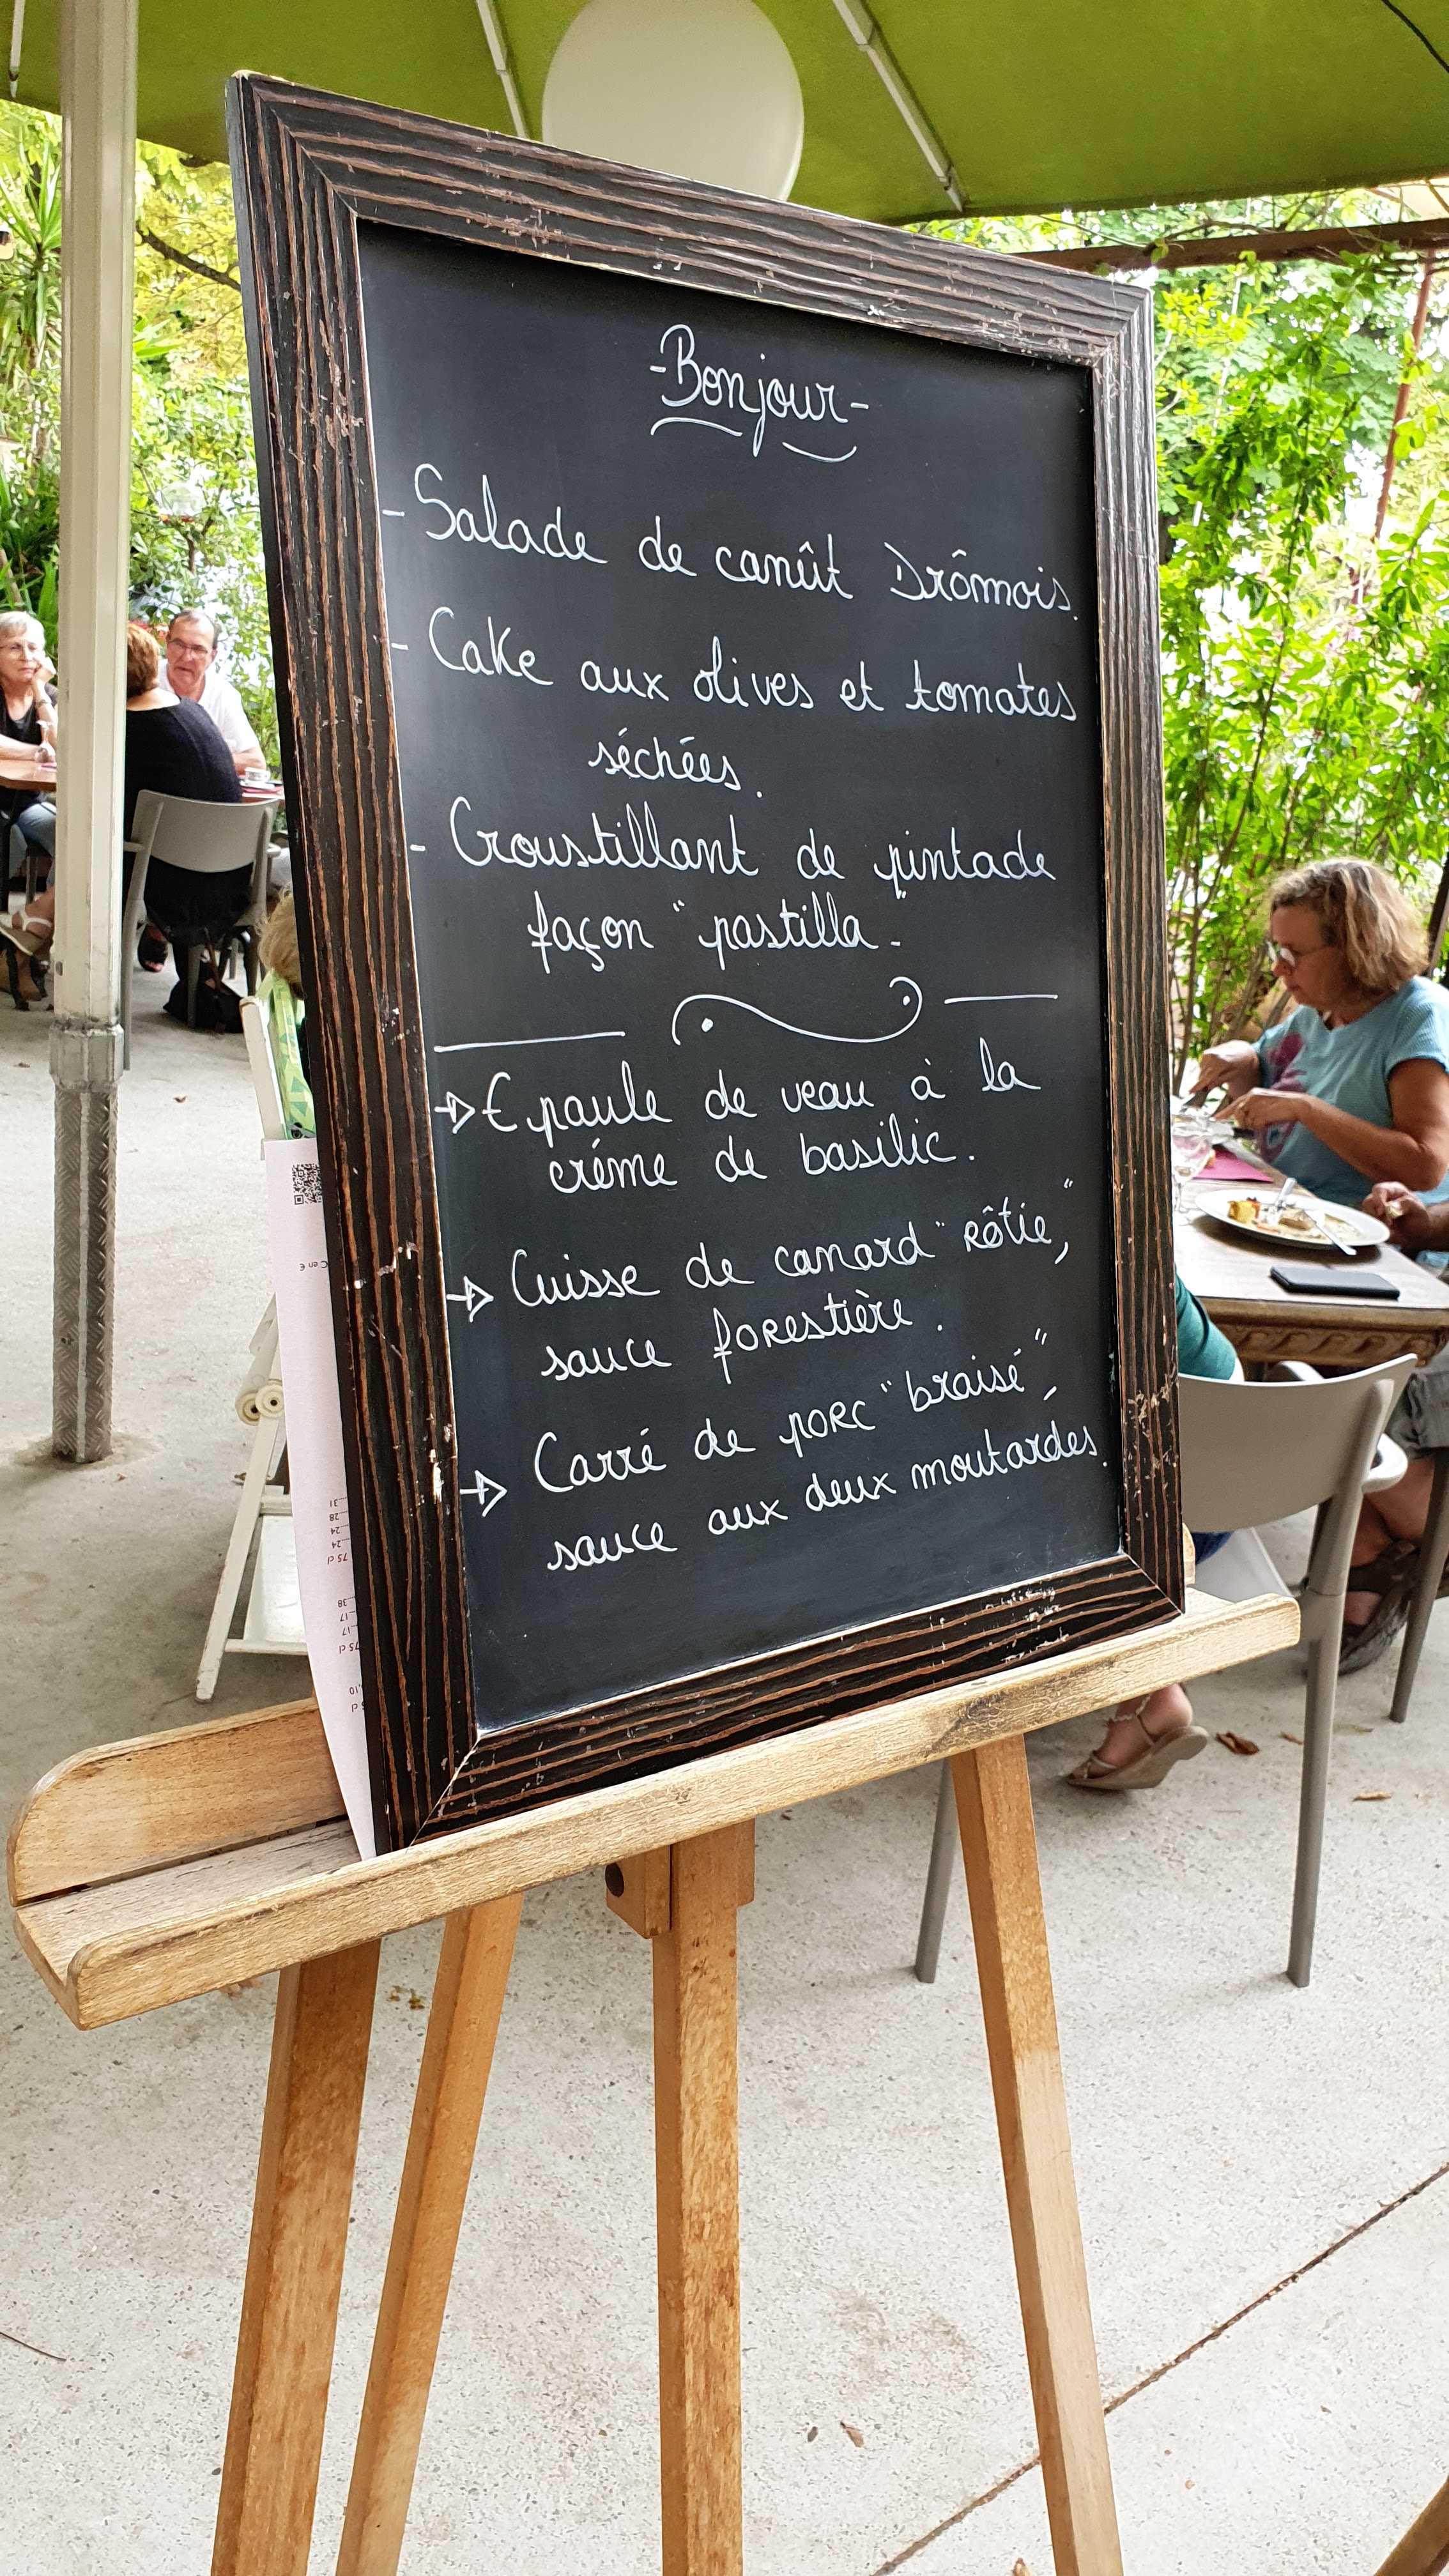 -Bonjour-
- Salade de canût Drômois.
- Cake aux olives et tomates
séchées.
- Croustillant de pintade
façon "pastilla".
→ Epaule de veau à la
créme de basilic.
→ Cuisse de canard "rôtie",
sauce forestière.
→ Carré de porc "braisé",
sauce aux deux moutardes.
C en €
31
28
24
24
75 cl
38
17
17
75 cl